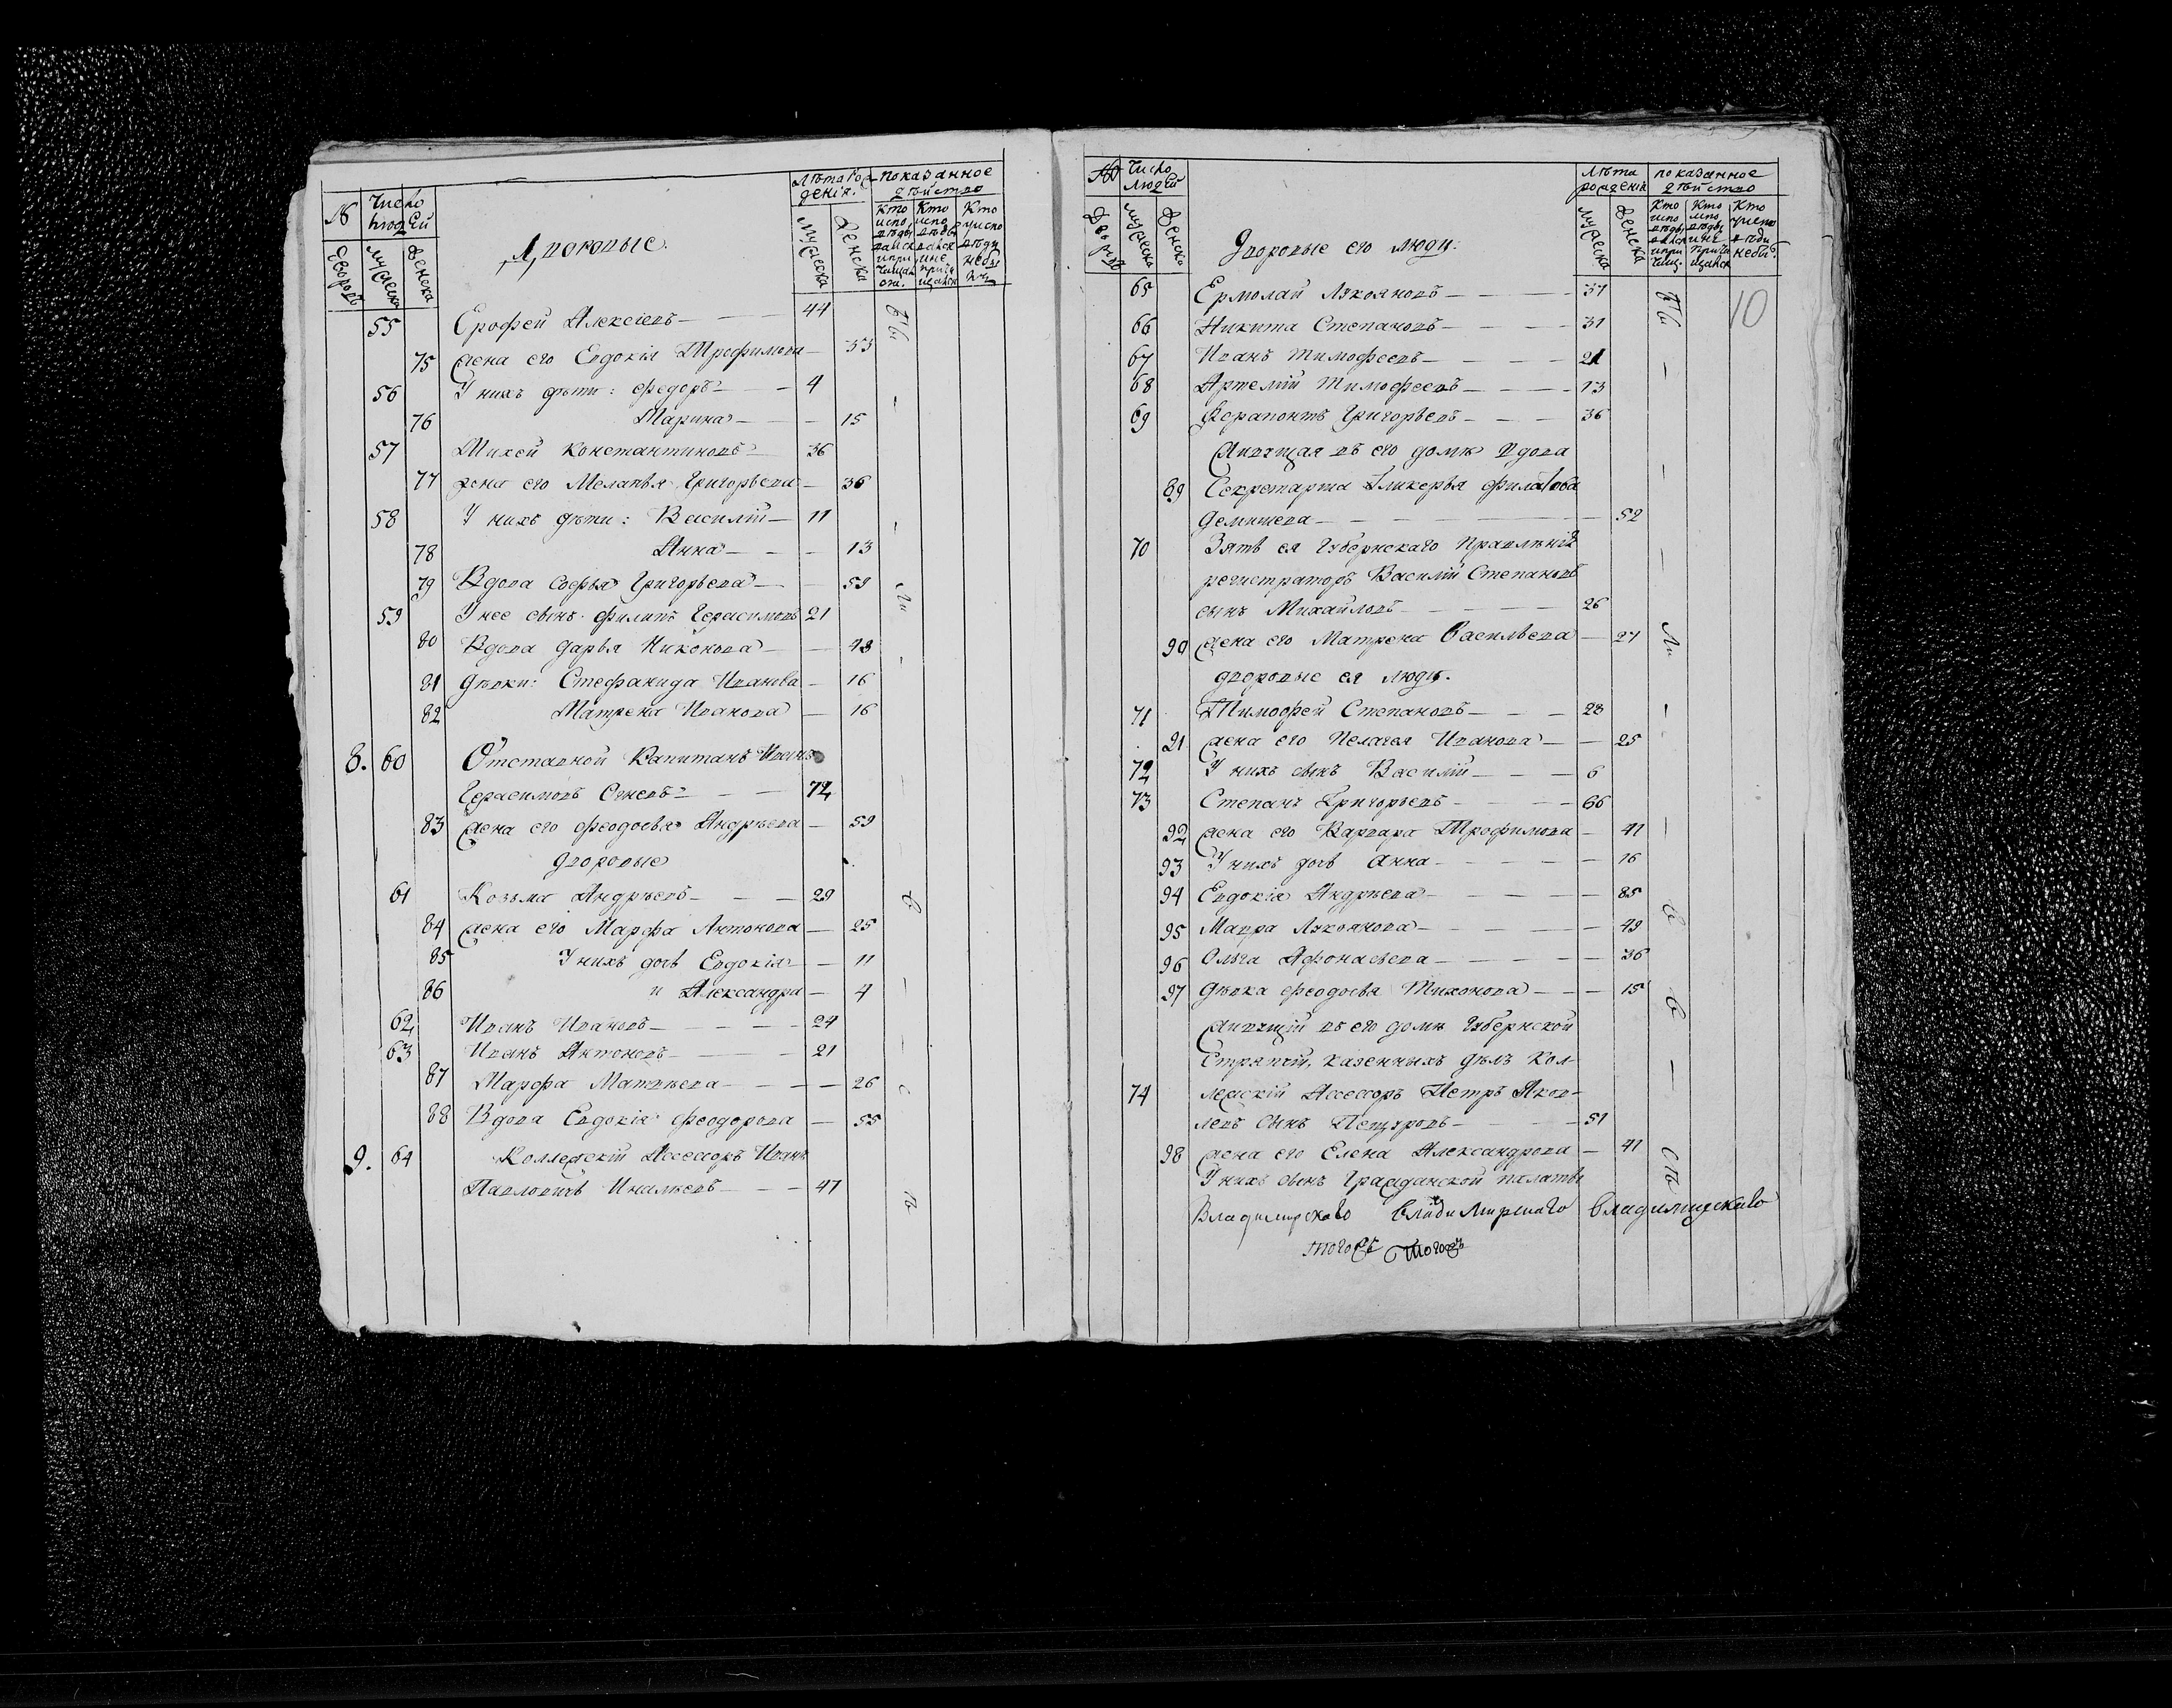 № Число людей Лѣта рож показанное
денія. дѣйство
Дворовъ мужеска женска Дворовые. мужеска женска Кто испо Кто испо Кто
55 Ерофей Алексѣевъ 44
75 жена его Евдокія Трофимова 33
56 У нихъ дѣти: Федоръ 4
76 Марина 15
57 Михей Константиновъ 36
77 жена его Меланья Григорьева 36
58 У нихъ дѣти: Василій 11
78 Анна 13
79 Вдова Софья Григорьева 59
59 У нее сынъ Филипъ Герасимовъ 21
80 Вдова Дарья Никонова 48
81 Дѣвки: Стефанида Иванова 16
82 Матрена Иванова 16
8. 60 Отставной Капитанъ Иванъ
Герасимовъ Огневъ 72
83 жена его Феодосья Андрѣева 59
дворовые
61 Козьма Андрѣевъ 29
84 жена его Марфа Антонова 25
85 У нихъ дочь Евдокія 11
86 и Александра 4
62 Иванъ Ивановъ 24
63 Иванъ Антоновъ 21
87 Марфа Матвѣева 26
88 Вдова Евдокія Феодорова 55
9. 64 Коллежскій Асессоръ Иванъ
Павловичь 47
№ Число людей Лѣта рожденія показанное дѣйство
Дворовъ мужеска женска Дворовые его люди: мужеска женска
10
65 Ермолай Лукояновъ 37
66 Никита Степановъ 31
67 Иванъ Тимофеевъ 21
68 Артемій Тимофеевъ 13
69 Ферапонтъ Григорьевъ 36
Живущая въ его домѣ вдова
89 Секретарша Гликерья Филатова
52
70 Зять ея Губернскаго Правленія
регистраторъ Василій Степановъ
сынъ Михайловъ 26
90 жена его Матрена Васильева 27
дворовые ея люди.
71 Тимофей Степановъ 28
91 жена его Пелагея Иванова 25
72 У нихъ сынъ Василій 6
73 Степанъ Григорьевъ 66
92 жена его Варвара Трофимова 41
93 У нихъ дочь Анна 16
94 Евдокія Андрѣева 85
95 Мавра Лукоянова 49
96 Ольга Афонасьева 36
97 Дѣвка Феодосья Тихонова 15
Живущій въ его домѣ Губернской
Стряпчій, казенныхъ дѣлъ Кол-
74 лежскій Асессоръ Петръ Яков-
левъ сынъ 51
98 жена его Елена Александрова 41
У нихъ сынъ Гражданской палаты
Владимирскаво Владимирскаго Владимирскаво
тогожъ тогожъ